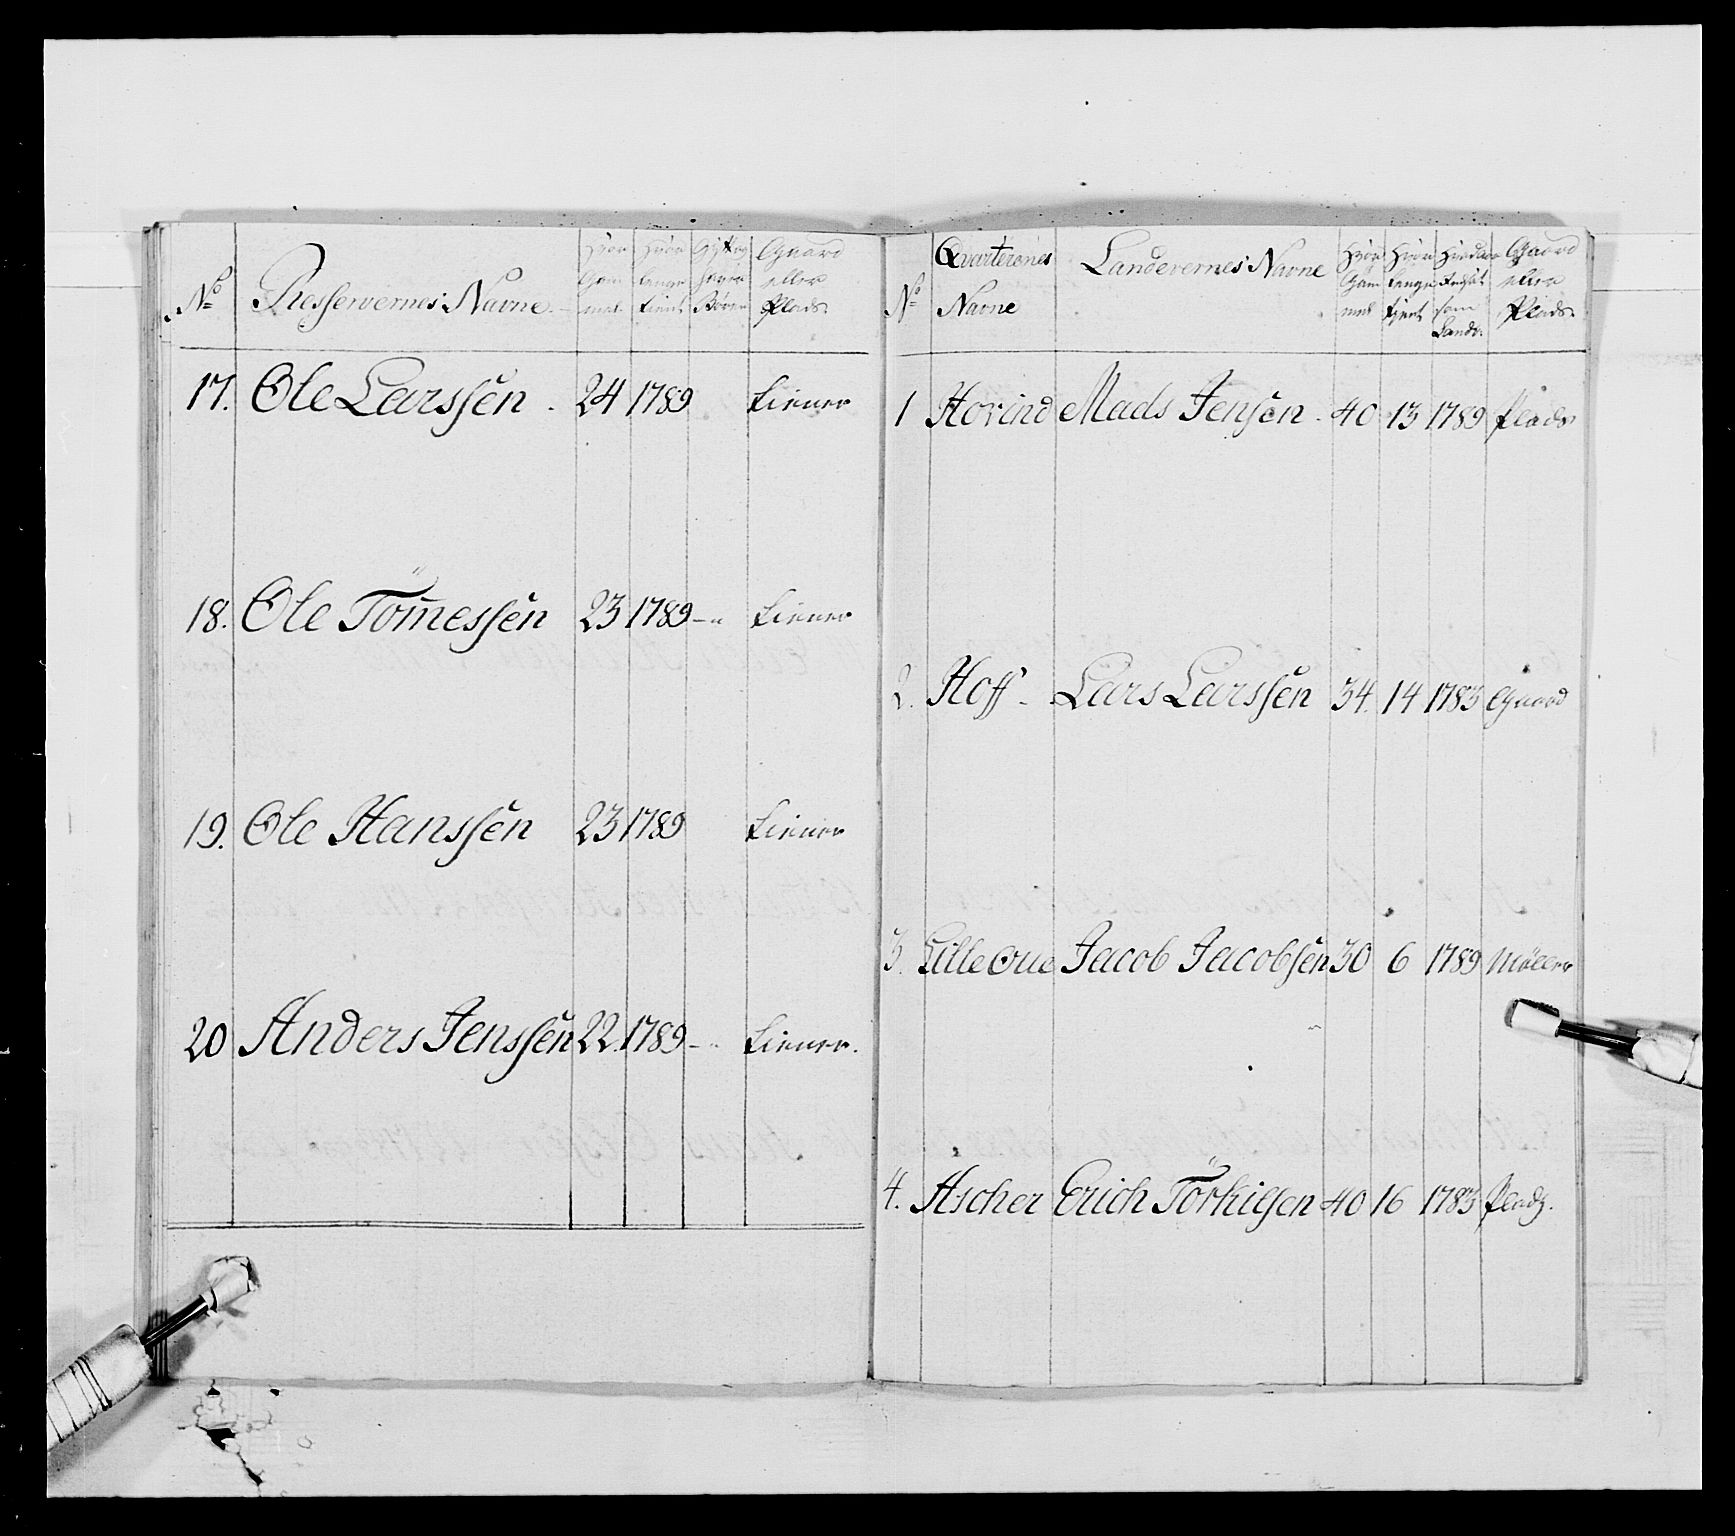 No Resservernes Navne. Hvor Gam mel Hvor lenge tient Gift og haver Börn Gaard eller Plads
17. Ole Larssen. 24 1789 tiener
18. Ole Tömessen 23 1789 - " tiener
19. Ole Hanssen 23 1789 tiener
20 Anders Jenssen 22. 1789 - " tiener.
No Qvarterenes Navne Landevernes Navne Hvor Gam mel Hvor lenge tjent som Landv. Gaard eller Plads
1 Hovind Mads Jensen. 40 13 1789 Plads
2. Hoff - Lars Larssen 34. 14 1783 Gaard
3. Lille Oue Jacob Jacobsen 30 6 1789 Möller
4. Ascher Erich Törkilsen 40 16 1783 Plads.